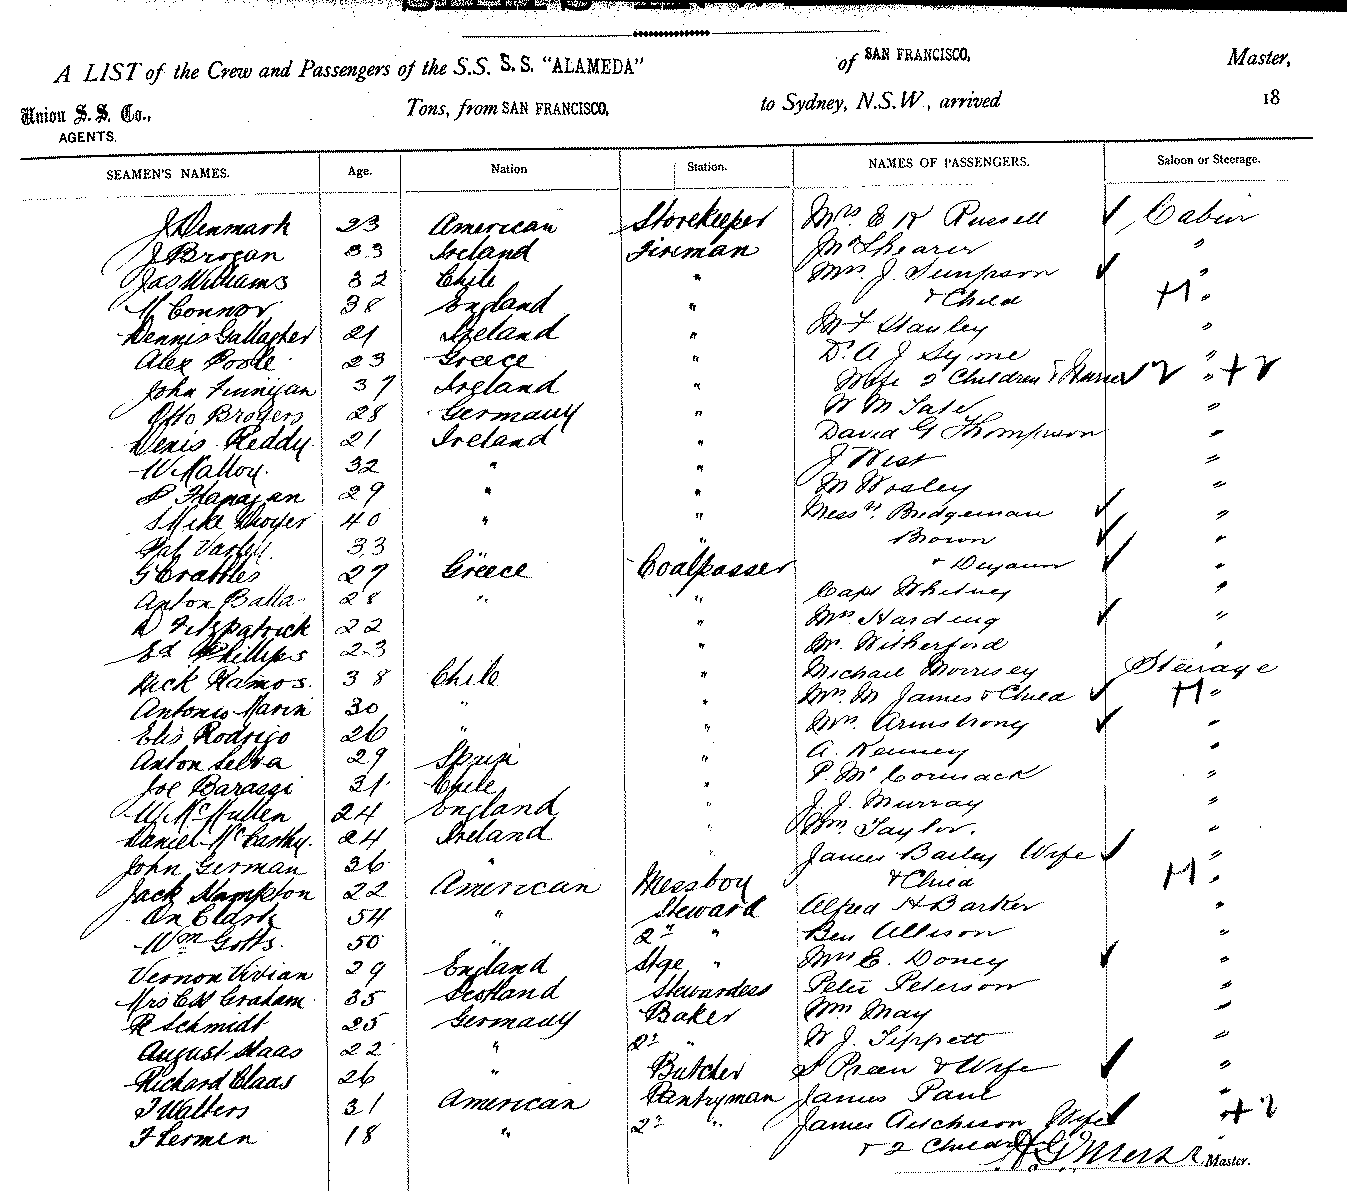 A LIST of the Crew and Passengers of the S.S. S. S. "ALAMEDA" of SAN FRANCISCO, Master,
Union S. S. Co., Tons, from SAN FRANCISCO, to Sydney, N.S.W., arrived 18
AGENTS.
SEAMEN'S NAMES. Age. Nation Station. NAMES OF PASSENGERS. Saloon or Steerage.
J Denmark 23 American Storekeeper Mrs E K Russell ✓ Cabin
J Brogan 33 Ireland Fireman Mr Shearer "
Jas Williams 32 Chile " Mrs. J. Simpson ✓ "
M Connor 38 England " & Child "
Dennis Gallagher 21 Ireland " Mr Stanley "
Alex Poole 23 Greece " Dr. A J Syme "
John Finnigan 37 Ireland " Wife 2 Children & Nurse ✓ 2 " + 2
Otto Brogers 28 Germany " W M Tate "
Denis Reddy 21 Ireland " David G Thompson "
W Malloy 32 " " J West "
Flanagan 29 " " M Wosley "
Mike Dwyer 40 " " Messrs. Bridgeman ✓ "
Pat 33 " " Brown ✓ "
G Crabbles 27 Greece Coalpasser & ✓ "
Anton Balla 28 " " Capt Whitney "
Fitzpatrick 22 " Mrs Harding ✓ "
Ed Phillips 23 " W. Witherford "
Dick Ramos. 38 Chile " Michael Morrisey Steerage
Antonio Marin 30 " " Mrs. M James & Child ✓ "
Elis Rodrigo 26 " " Mrs. Armstrong ✓ "
Anton Selva 29 Spain " A. Kenney "
Joe Barassi 31 Chile " P. McCormack "
W McMullen 24 England " J. J. Murray "
Daniel McCarthy. 24 Ireland " Wm Taylor. "
John German 36 " " James Bailey Wife ✓ "
Jack Hampton 22 American Messboy & Child "
Clark 54 " Steward Alfred H Barker "
Wm Gotts. 50 " 2nd " Ben Allison "
Vernon Vivian 29 England Stge " Mrs E. Doney ✓ "
Mrs Graham 35 Scotland Stewardess Peter Peterson "
R Schmidt 25 Germany Baker Wm May "
August Haas 22 " 2nd " W J. Tippett "
Richard Claas 26 " Butcher S Preen & Wife ✓ "
J Walters 31 American Pantryman James Paul "
F Lermen 18 " 2nd " James Aitchison Wife ✓ " + 2
& 2 Children Master.